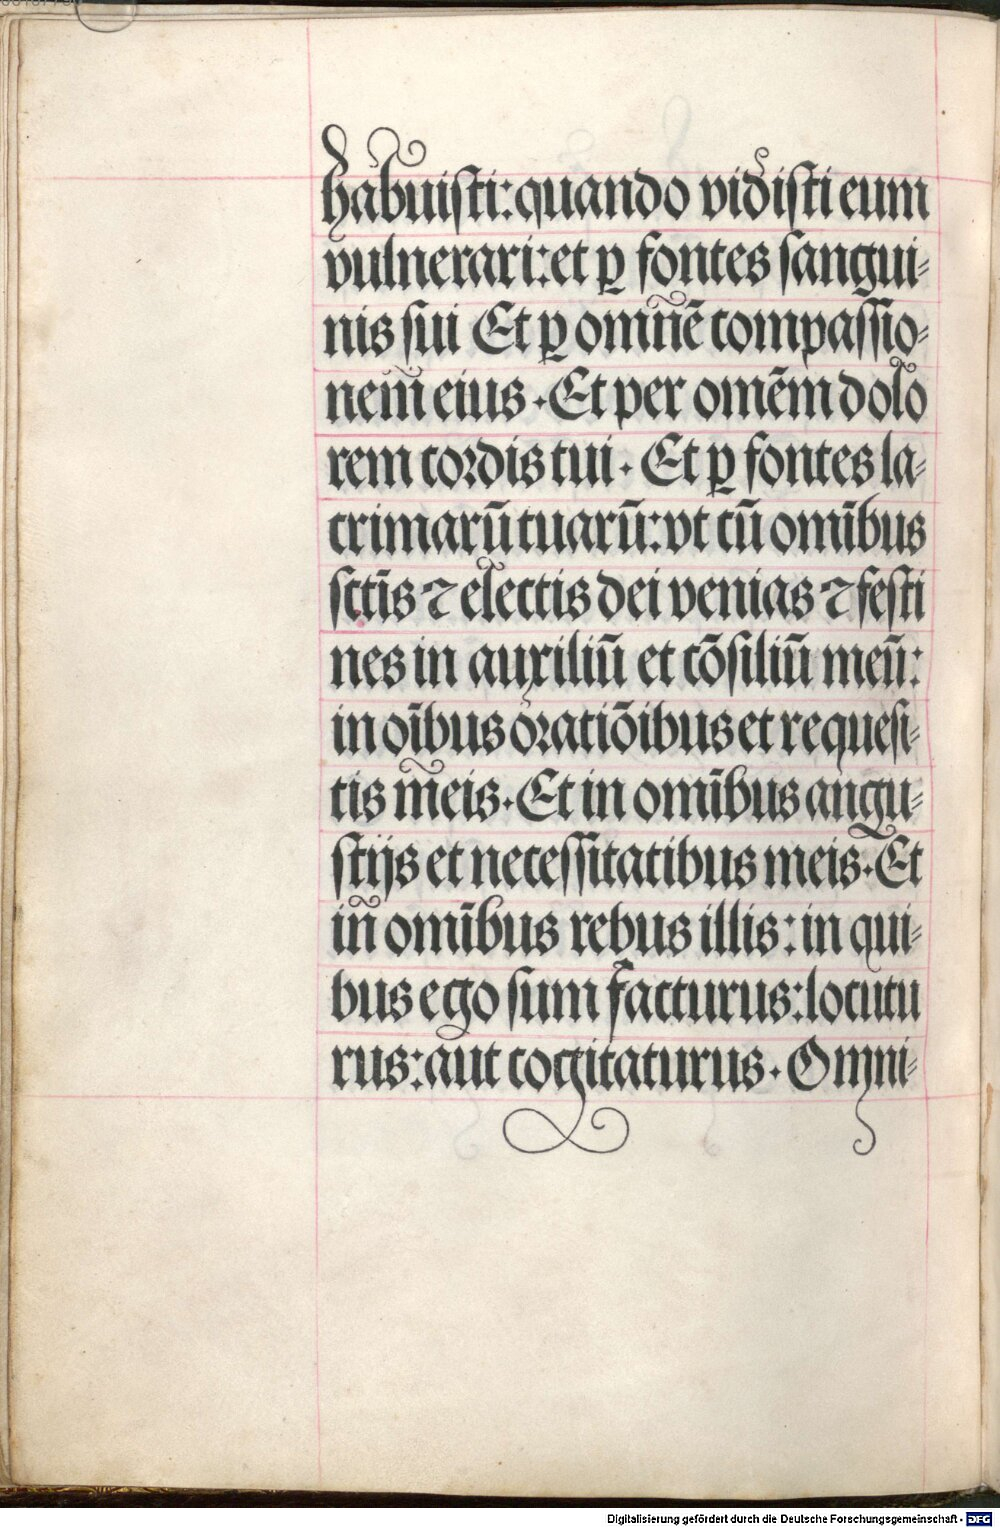 habuisti: quando vidisti eum
vulnerari: et ꝑ fontes sangui-
nis sui Et ꝑ omnē compassio-
nem eius. Et per omēm dolo
rem cordis tui. Et ꝑ fontes la-
crimarū tuarū: vt cū omībus
sctīs ⁊ electis dei venias ⁊ festi
nes in auxiliū et cōsiliū meū:
in oībus oratiōibus et requesi-
tis meis. Et in omībus angu-
stijs et necessitatibus meis. Et
in omībus rebus illis: in qui-
bus ego sum facturus: locutu
rus: aut cogitaturus. Omni-
Digitalisierung gefördert durch die Deutsche Forschungsgemeinschaft - DFG